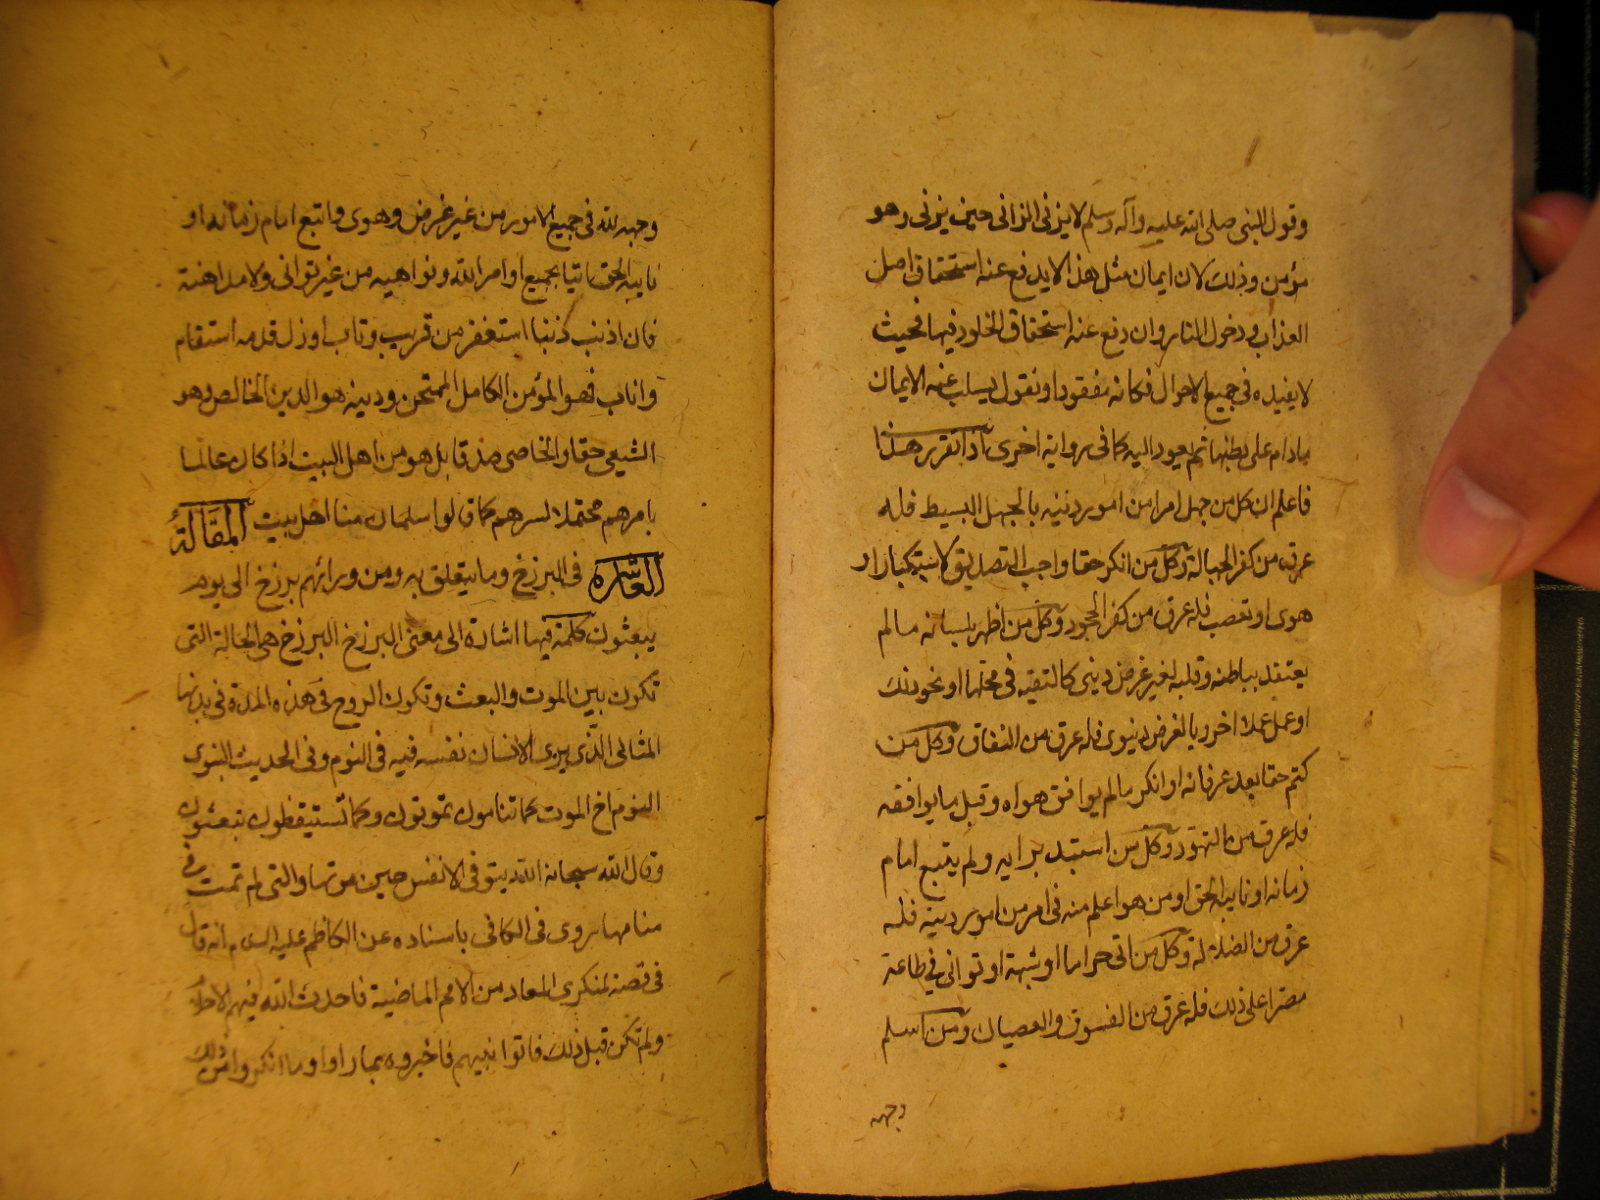 وقول النبي صلى الله عليه وآله وسلم لا يزني الزاني حين يزني وهو
مؤمن وذلك لان ايمان مثل هذا لا يدفع عنه استحقاق اصل
العذاب ودخول النار وان دفع عنه استحقاق الخلود فيها فحيث
لا يفيده في جميع الاحوال فكانه مفقود او نقول يسلب عنه الايمان
مادام على بطنها ثم يعود اليه كما في رواية اخرى اذا تقرر هذا
فاعلم ان كل من جهل امرا من امور دينه بالجهل البسيط فله
عرق من كفر الجهالة وكل من انكر حقا واجب التصديق لاستكبار او
هوى او تعصب فله عرق من كفر الجحود وكل من اظهر بلسانه ما لم
يعتقد بباطنه وقلبه لغير غرض ديني كالتقية في محلها او نحو ذلك
او عمل عملا اخرويا لغرض دنيوي فله عرق من النفاق وكل من
كتم حقا بعد عرفانه او انكر ما لم يوافق هواه وقبل ما يوافقه
فله عرق من التهود وكل من استبد برايه ولم يتبع امام
زمانه او نايبه الحق او من هو اعلم منه في امر من امور دينه فله
عرق من الضلالة وكل من اتى حراما او شبهة او توانى في طاعة
مصرا على ذلك فله عرق من الفسوق والعصيان ومن اسلم
وجهه
وجهه لله في جميع الامور من غير غرض وهوى واتبع امام زمانه او
نايبه الحق اتيا بجميع اوامر الله ونواهيه من غير توانى ولا مداهنة
فان اذنب ذنبا استغفر من قريب وتاب او زل قدمه استقام
واناب فهو المؤمن الكامل الممتحن ودينه هو الدين الخالص وهو
الشيعي حقا والخاصي صدقا بل هو من اهل البيت اذا كان عالما
بامرهم محتملا لسرهم كما قالوا سلمان منا اهل بيت المقالة
العاشرة في البرزخ وما يتعلق به ومن ورائهم برزخ الى يوم
يبعثون كلمة فيها اشارة الى معنى البرزخ البرزخ هي الحالة التي
تكون بين الموت والبعث وتكون الروح في هذه المدة في بدنها
المثالي الذي يرى الانسان نفسه فيه في النوم وفي الحديث النبوي
النوم اخ الموت كما تنامون تموتون وكما تستيقظون تبعثون
وقال الله سبحانه الله يتوفى الانفس حين موتها والتي لم تمت في
منامها روى في الكافي باسناده عن الكاظم عليه السلام انه قال
في قصة لمنكري المعاد من الامم الماضية فاحدث الله فيهم الاحلام
ولم تكن قبل ذلك فاتوا نبيهم فاخبروه بما راوا وما انكروا من ذلك